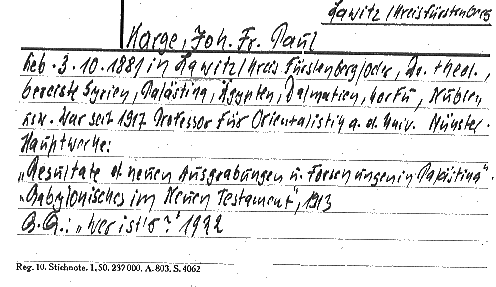 Lawitz / Kreis Fürstenberg
Karge, Joh. Fr. Paul
Geb. 3.10.1881 in Lawitz/Kreis Fürstenberg/Oder, Dr. theol.,
bereiste Syrien, Palästina, Ägypten, Dalmatien, Korfu, Nubien
usw. War seit 1917 Professor für Orientalistig a. d. Univ. Münster.
Hauptwerke:
„Resultate d. neuen Ausgrabungen u. Forschungen in Palästina".
„Babylonisches im Neuen Testament", 1913
B.Q.: „Wer ist's?" 1922
Reg. 10. Stichnote. 1. 50. 237 000. A. 803. S. 4062